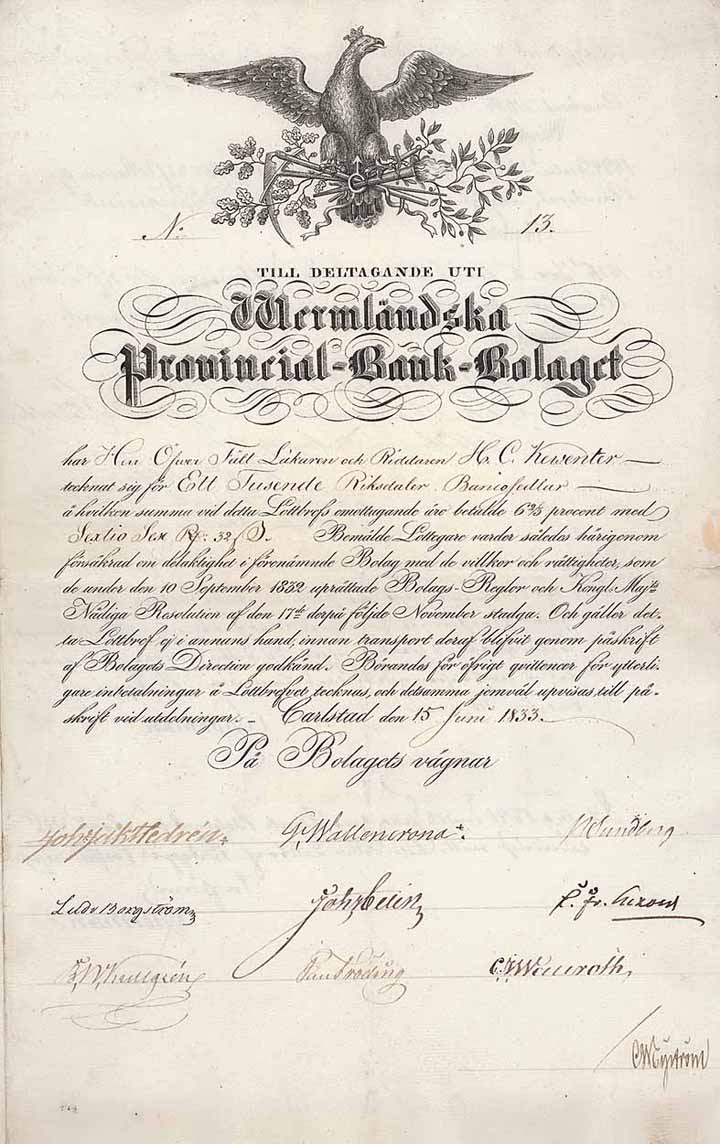 N: 13.
TILL DELTAGANDE UTI
Wermländska
Provincial-Bank-Bolaget
har Herr Öfver Fält Läkaren och Riddaren H. C. Kewenter
tecknat sig för Ett Tusende Riksdaler Bancosedlar
å hvilken summa vid detta Lottbrefs emottagande äro betalde 6 2/3 procent med
Sextio Sex Rd: 32 s. Bemälde Lottegare varder således härigenom
försäkrad om delaktighet i förenämnde Bolag med de villkor och rättigheter, som
de under den 10 September 1832 upprättade Bolags-Reglor och Kongl. Maj:ts
Nådiga Resolution af den 17de derpå följde November stadga. Och gäller det-
ta Lottbref ej i annans hand, innan transport deraf blifvit genom påskrift
af Bolagets Direction godkänd. Börandes för öfrigt qvittencer för ytterli-
gare inbetalningar å Lottbrefvet tecknas, och detsamma jemväl upvisas till på-
skrift vid utdelningar. - Carlstad den 15 Juni 1833.
På Bolagets vägnar
Hedrén G Wallencrona P Sundberg
Ludv Borgström
CMyström